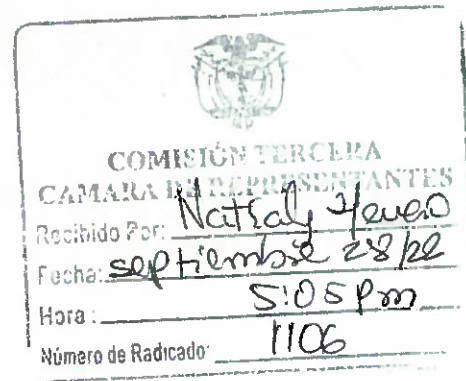 COMISIÓN TERCERA
CAMARA DE REPRESENTANTES
Recibido Por:
Fecha: septiembre 28/22
Hora: 5:05 Pm
Número de Radicado: 1106